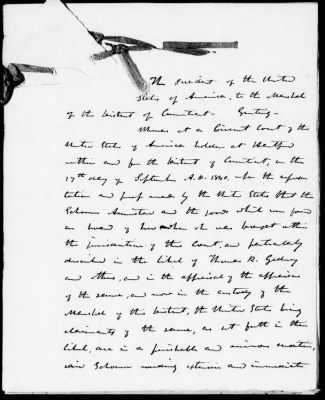 The President of the United
States of America, to the Marshal
of the District of Connecticut— Greeting—
Whereas at a Circuit Court of the
United States of America holden at Hartford
within and for the District of Connecticut, on the
17th day of September A.D. 1840. on the
and proof made by the United States that the
Schooner Amistad and the goods which were found
on board of her when she was brought within
the jurisdiction of this Court, and particularly
described in the libel of Thomas R. Gedney
and others, and in the appraisal of the appraisers
of the same, and now in the custody of the
Marshal of this District, the United States being
claimants of the same, as set forth in their
libel, are in a perishable and
said Schooner needing extensive and immediate